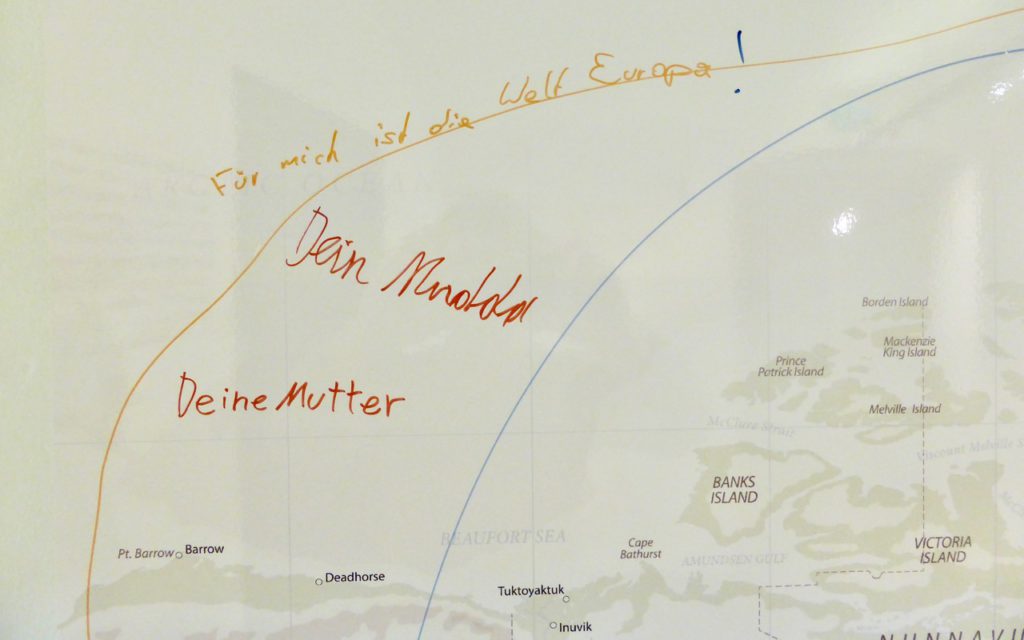 Für mich ist die Welt Europa!
ARCTIC OCEAN
Dein
Borden Island
Mackenzie
King Island
Prince
Patrick Island
Deine Mutter
Melville Island
McClure Strait
Viscount Melville
BANKS
ISLAND
BEAUFORT SEA
Pt. Barrow
Barrow
Cape
Bathurst
VICTORIA
ISLAND
AMUNDSEN GULF
Deadhorse
Tuktoyaktuk
Inuvik
NUNNAVU